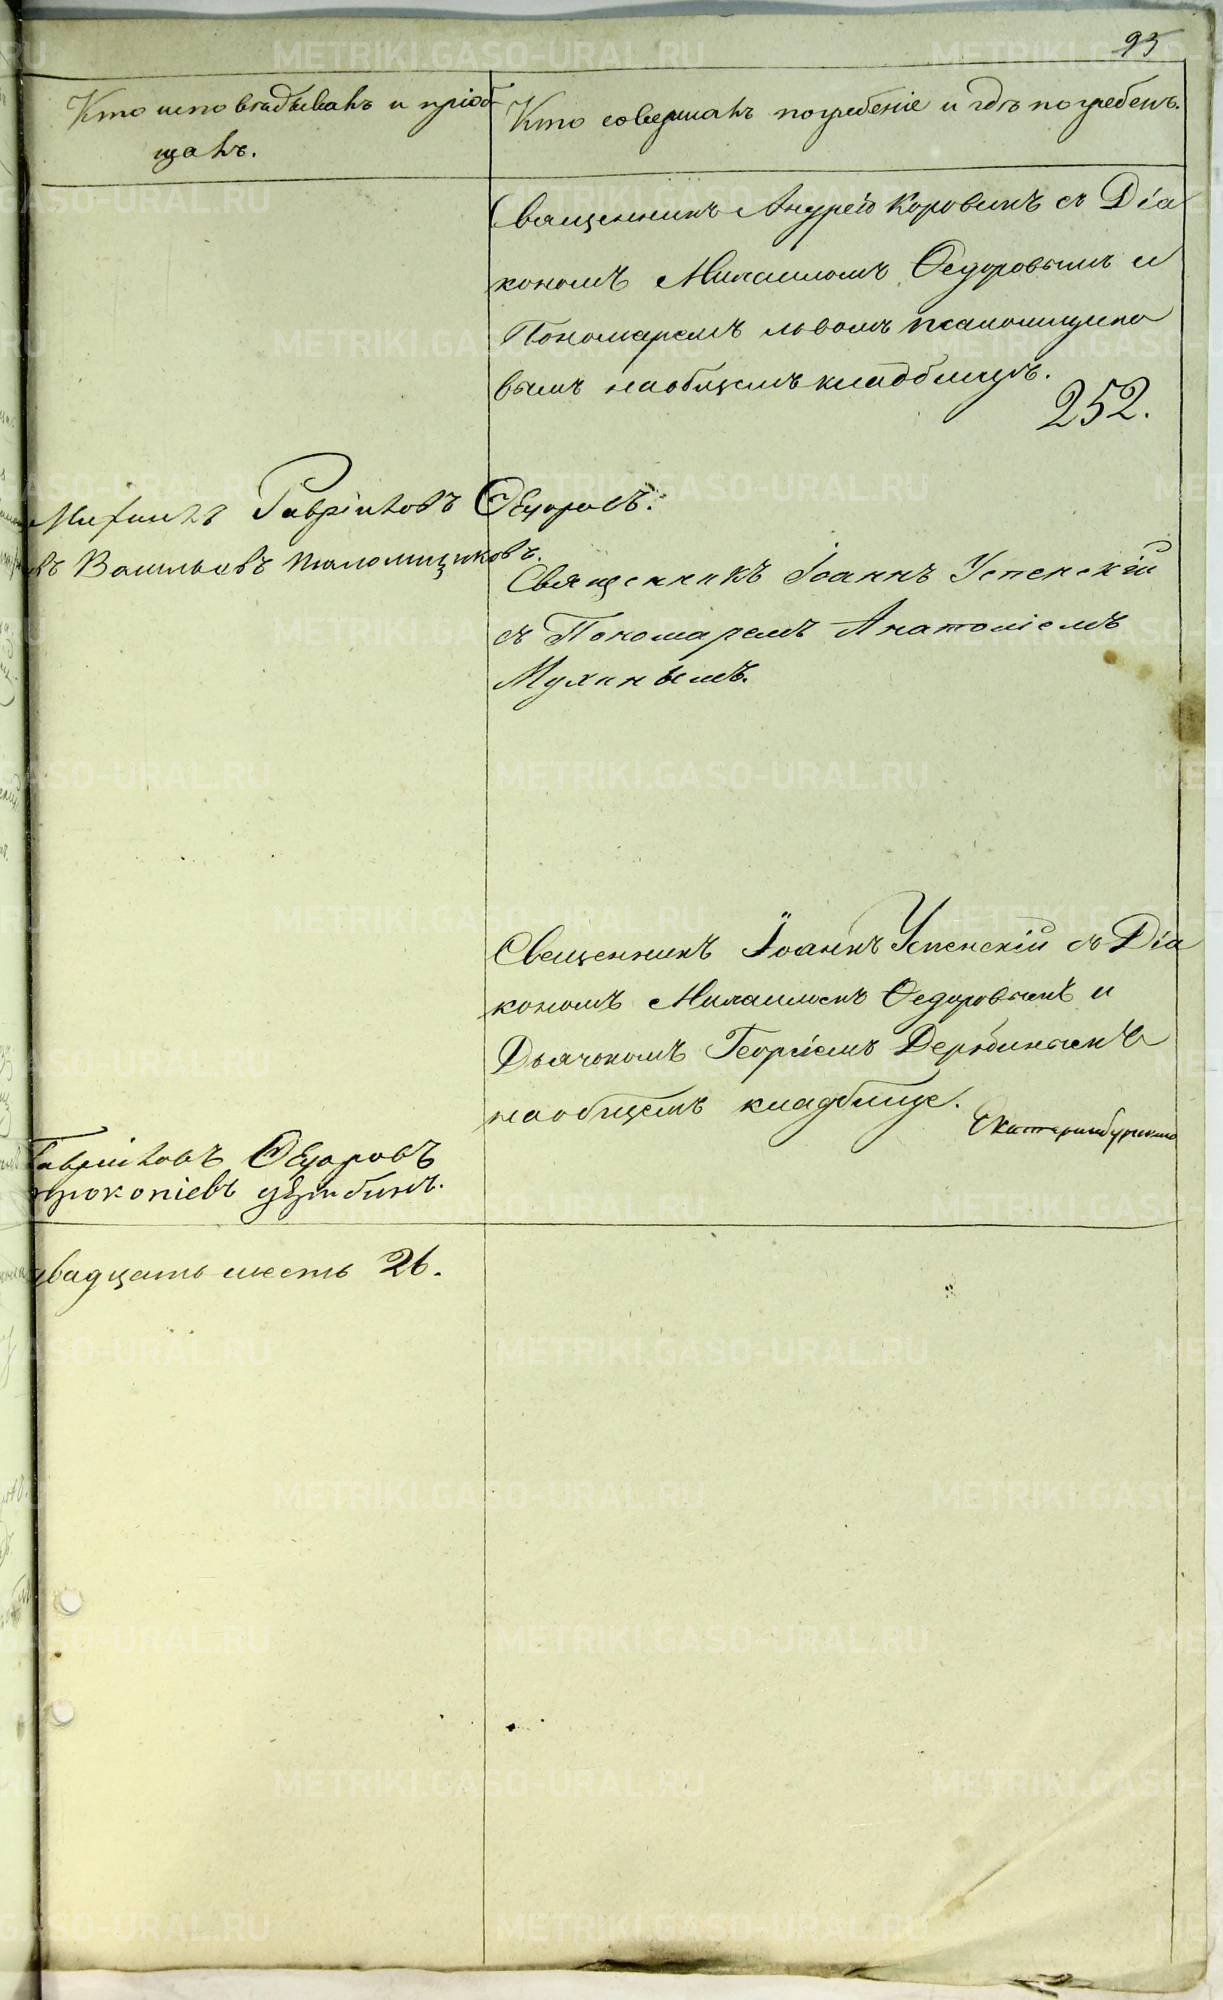 95
Кто исповѣдывалъ и пріоб-
щалъ.
Кто совершалъ погребеніе и гдѣ погребенъ.
Священникъ Андрей Коровинъ съ Діа
кономъ Михаиломъ Ѳедоровымъ и
Пономаремъ Львомъ
вымъ на общемъ кладбищѣ.
252.
Михаилъ Гавріиловъ Ѳедоровъ.
въ Васильевъ
Священникъ Іоаннъ Успенскій
съ Пономаремъ Анатоліемъ
Мухинымъ.
Свещенникъ Іоаннъ Успенскій съ Діа
кономъ Михаиломъ Ѳедоровымъ и
Дьячкомъ Георгіемъ Дерябинымъ
на общемъ кладбище.
Гавріиловъ Ѳедоровъ
прокопіевъ
двадцать шесть 26.
METRIKI.GASO-URAL.RU